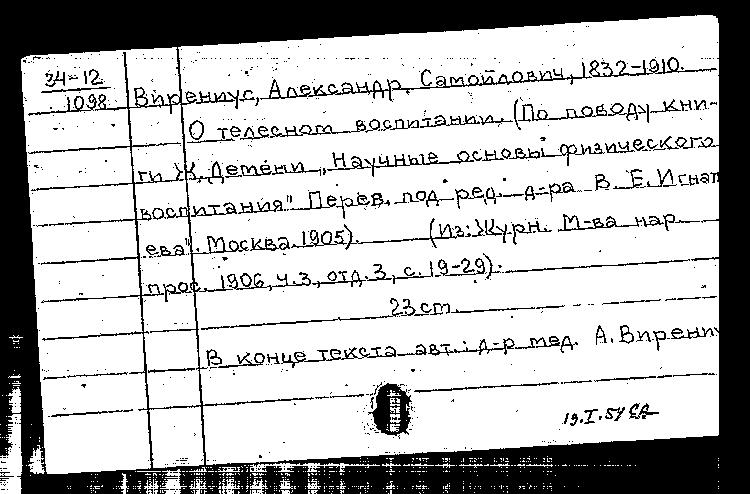 34-12
1098
Вирениус, Александр, Самойлович, 1832-1910.
О телесном воспитании. (По поводу кни-
ги Ж. Демени „Научные основы физического
воспитания" Перев. под ред. д-ра В. Е. Игнат
ева". Москва. 1905). (Из: Журн. М-ва нар.
прос. 1906, ч.3, отд.3, с. 19-29).
23 cm.
В конце текста авт.: д-р мед. А. Вирениу
19.I.54